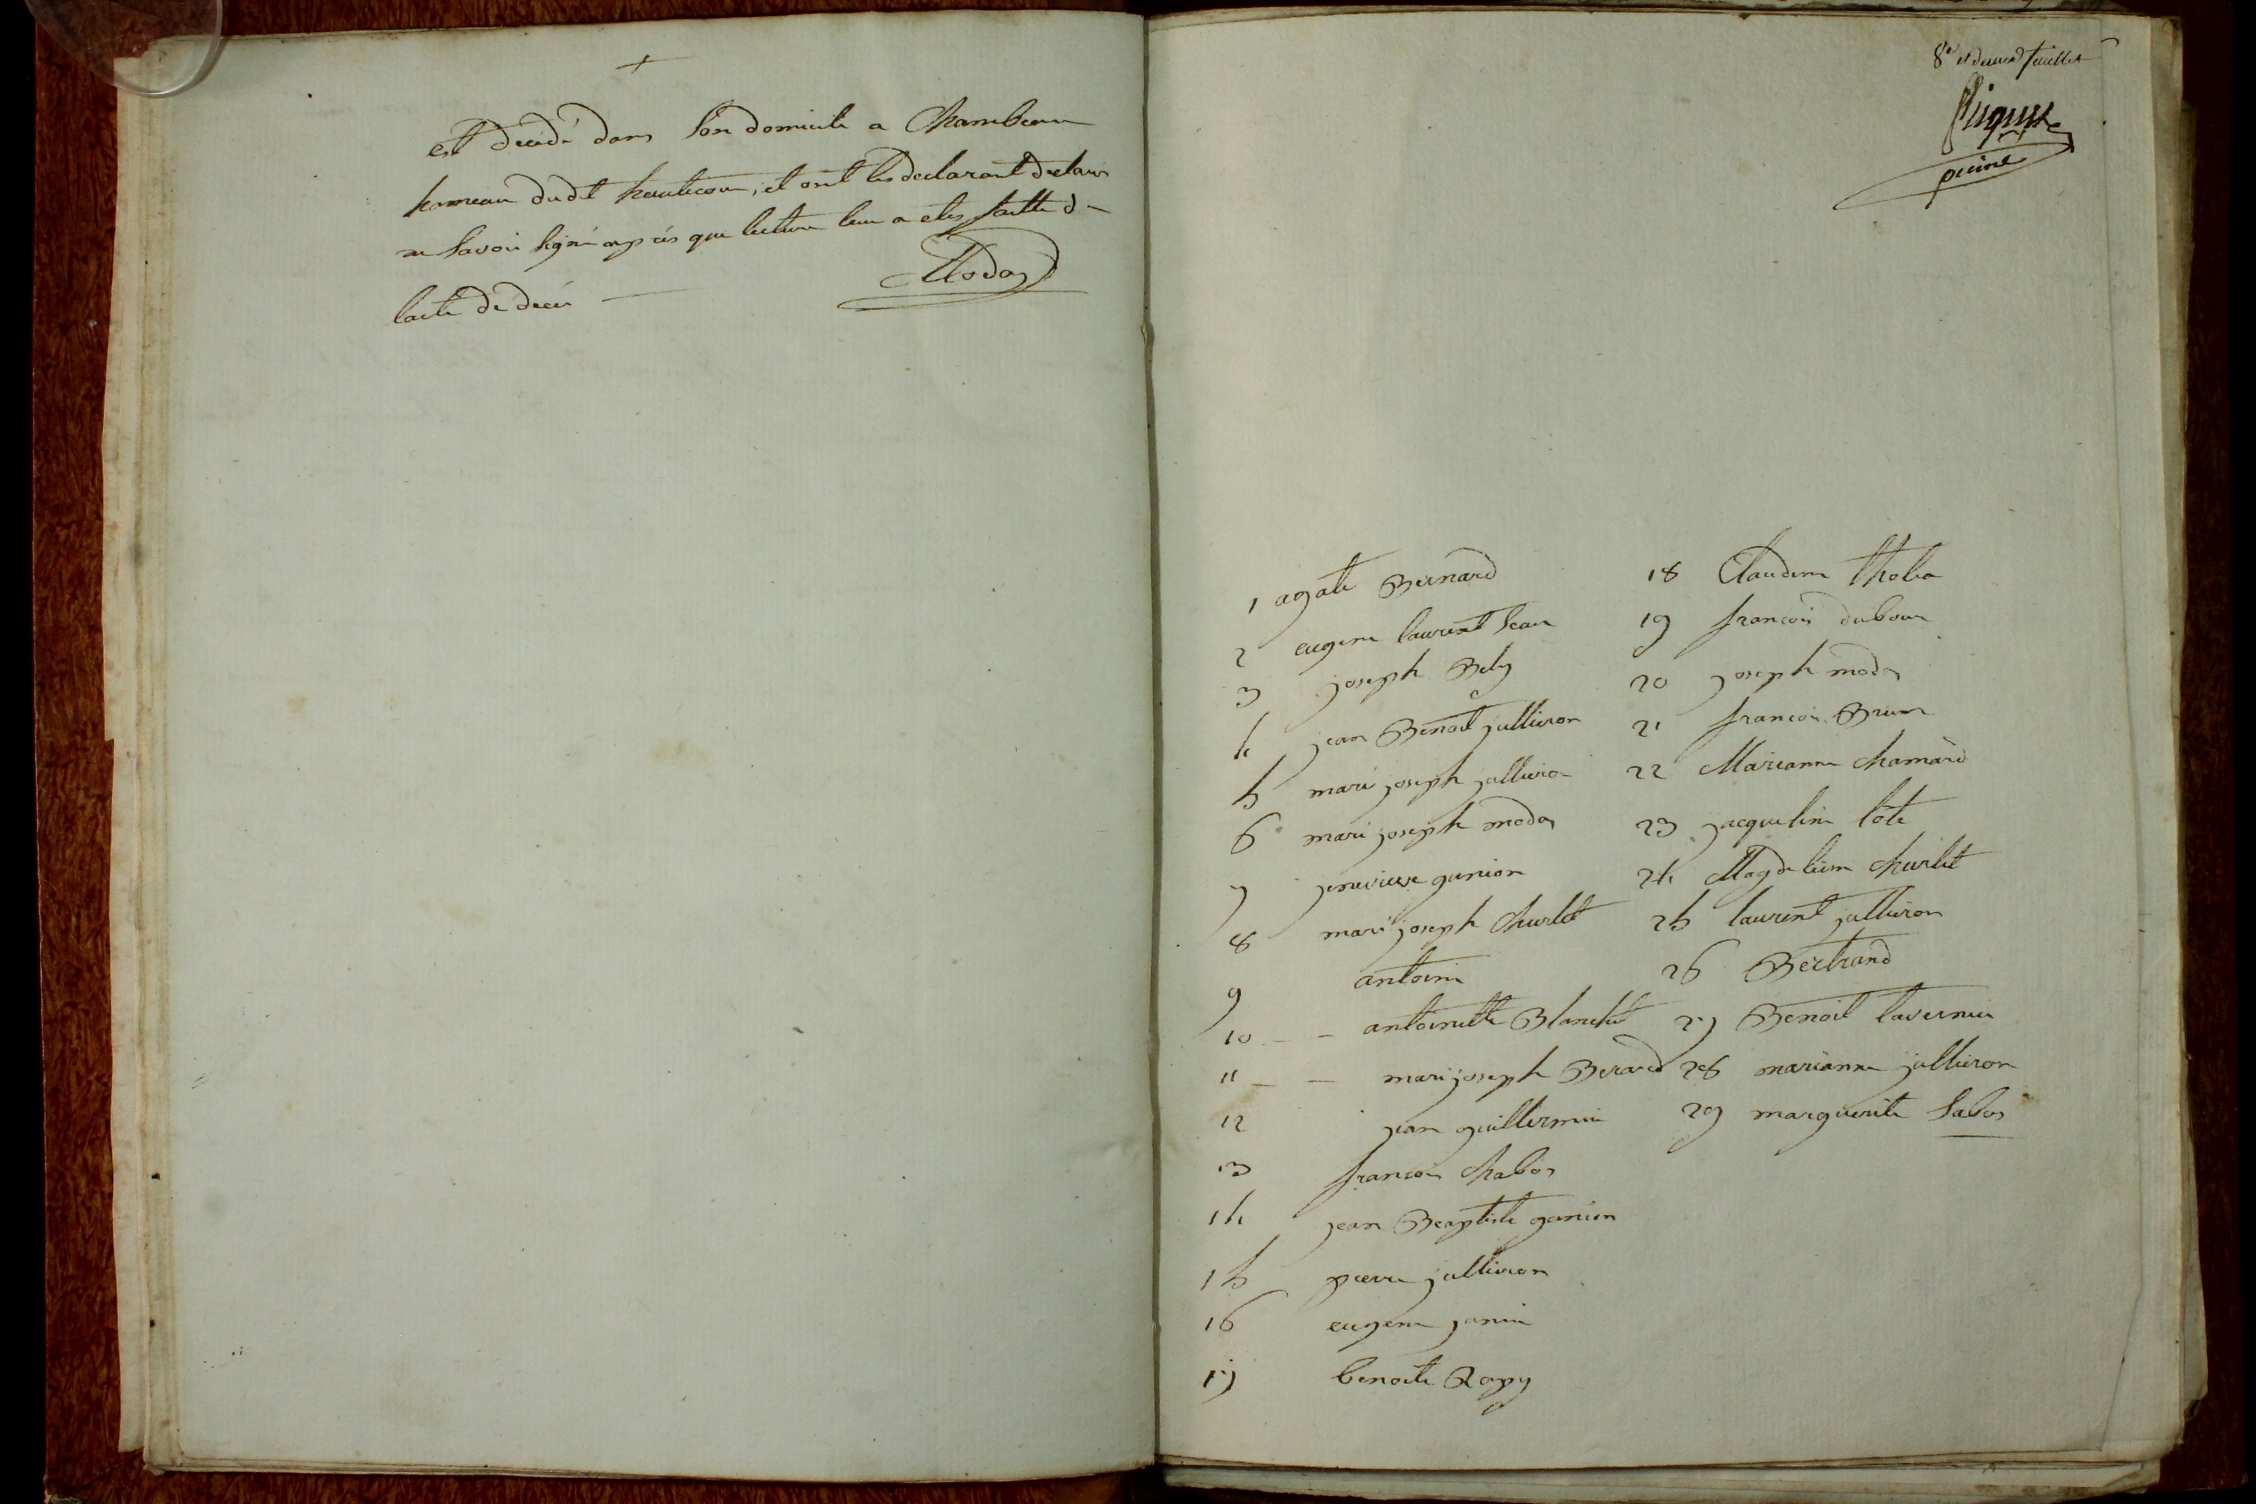 est decédé dans son domicile a Chambeau
hameau dudit hautecour, et ont les declarant declaré
ne savoir signé aprés que lecture leur a etés faitte d
lacte de decés
Moday
8e et dernier feuillet
1 agate Bernard
2 eugene laurent
3 joseph Bely
4 jean Benoit jullieron
5 mari joseph jullieron
6 mari joseph moday
7 genevieve gunion
8 mari joseph Churlet
9 antoine
10 antoinette Blanchet
11 mari joseph Berard
12 jean guillermin
13 francois Chaboz
14 jean Beaptiste gonion
15 pierre jullieron
16 eugene janin
17 benoite Rapy
18 Claudine
19 francois dubour
20 joseph moday
21 francois Brun
22 Marianne Chamard
23 jacqueline
24 Magdeleine Churlet
25 laurent jullieron
26 Bertrand
27 Benoit tavernier
28 marianne jullieron
29 marguerite